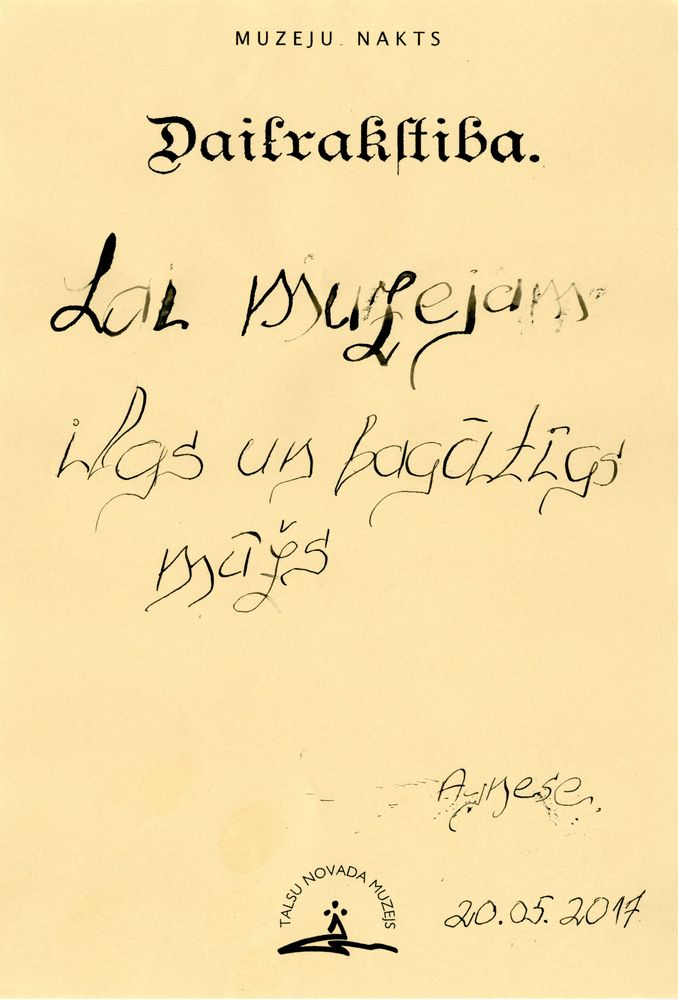 MUZEJU NAKTS
Dailrakstiba.
Lai muzejam
ilgs un bagātīgs
mūžs
Agnese.
TALSU NOVADA MUZEJS
20.05.2017